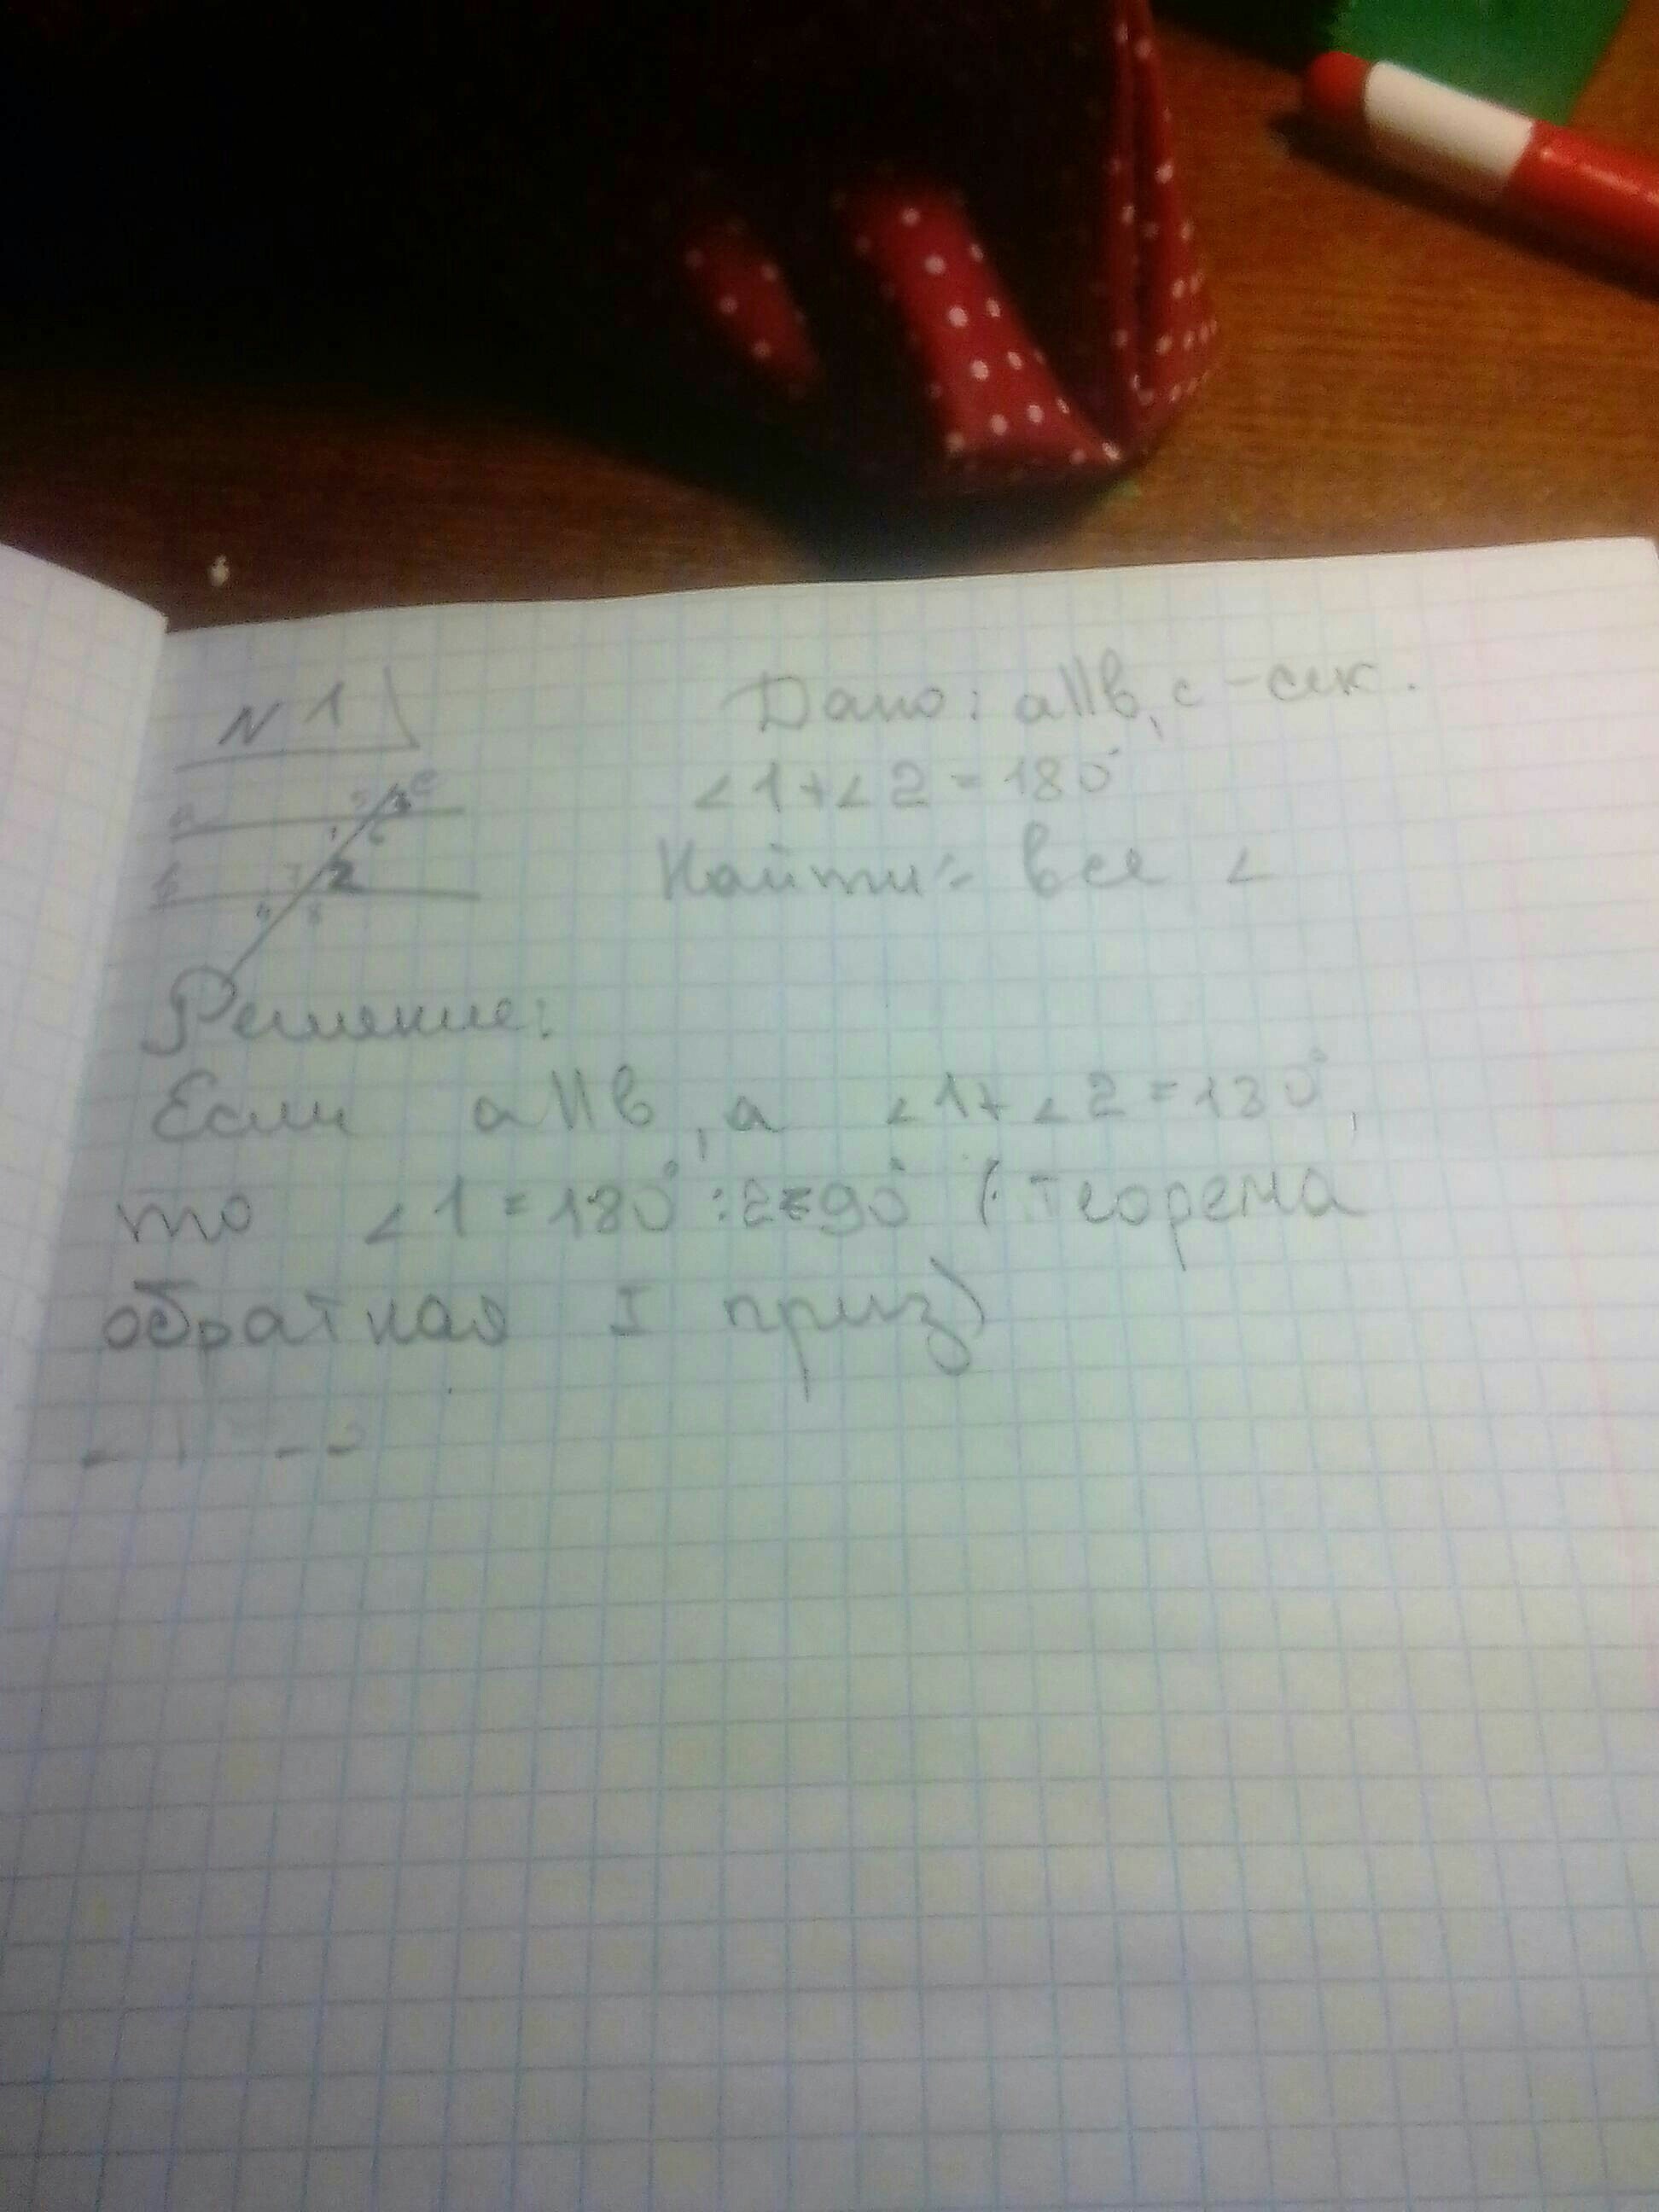 N 1
Дано: a||b, c - сек.
∠1+∠2=180°
Найти: все ∠
a
b
c
5 3
1 6
7 2
4 8
Решение:
Если a||b, а ∠1+∠2=180°,
то ∠1=180°:2=90° (теорема
обратная I приз)